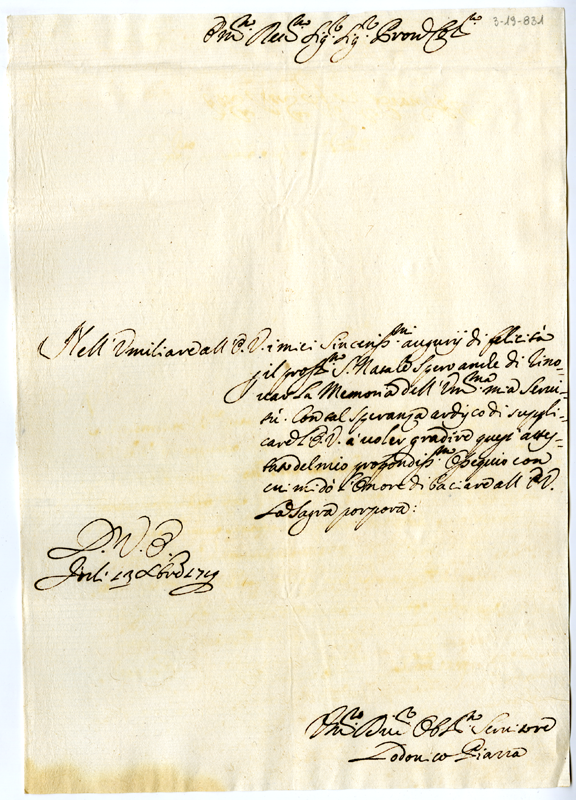 3-19-831
Em.mo Rev.mo Sig.r Sig.r Pron Col.mo
Nell'Umiliare all'E.V. i miei Sinceriss.mi augurij di felicità
p il pross.mo S. Natale Spero anche di rino-
var La Memoria dell'Um.ma mia Servi-
tù. Con tal speranza ardisco di suppli-
care l'E.V. à voler gradire quest'attes-
tato del mio profondiss.mo Ossequio con
cui mi dò l'Onore di baciare all'E.V.
La Sagra porpora:
D.V.E.
Forlì 13 Xbre 1719
Um.mo Div.mo Obb.mo Servitore
Lodovico